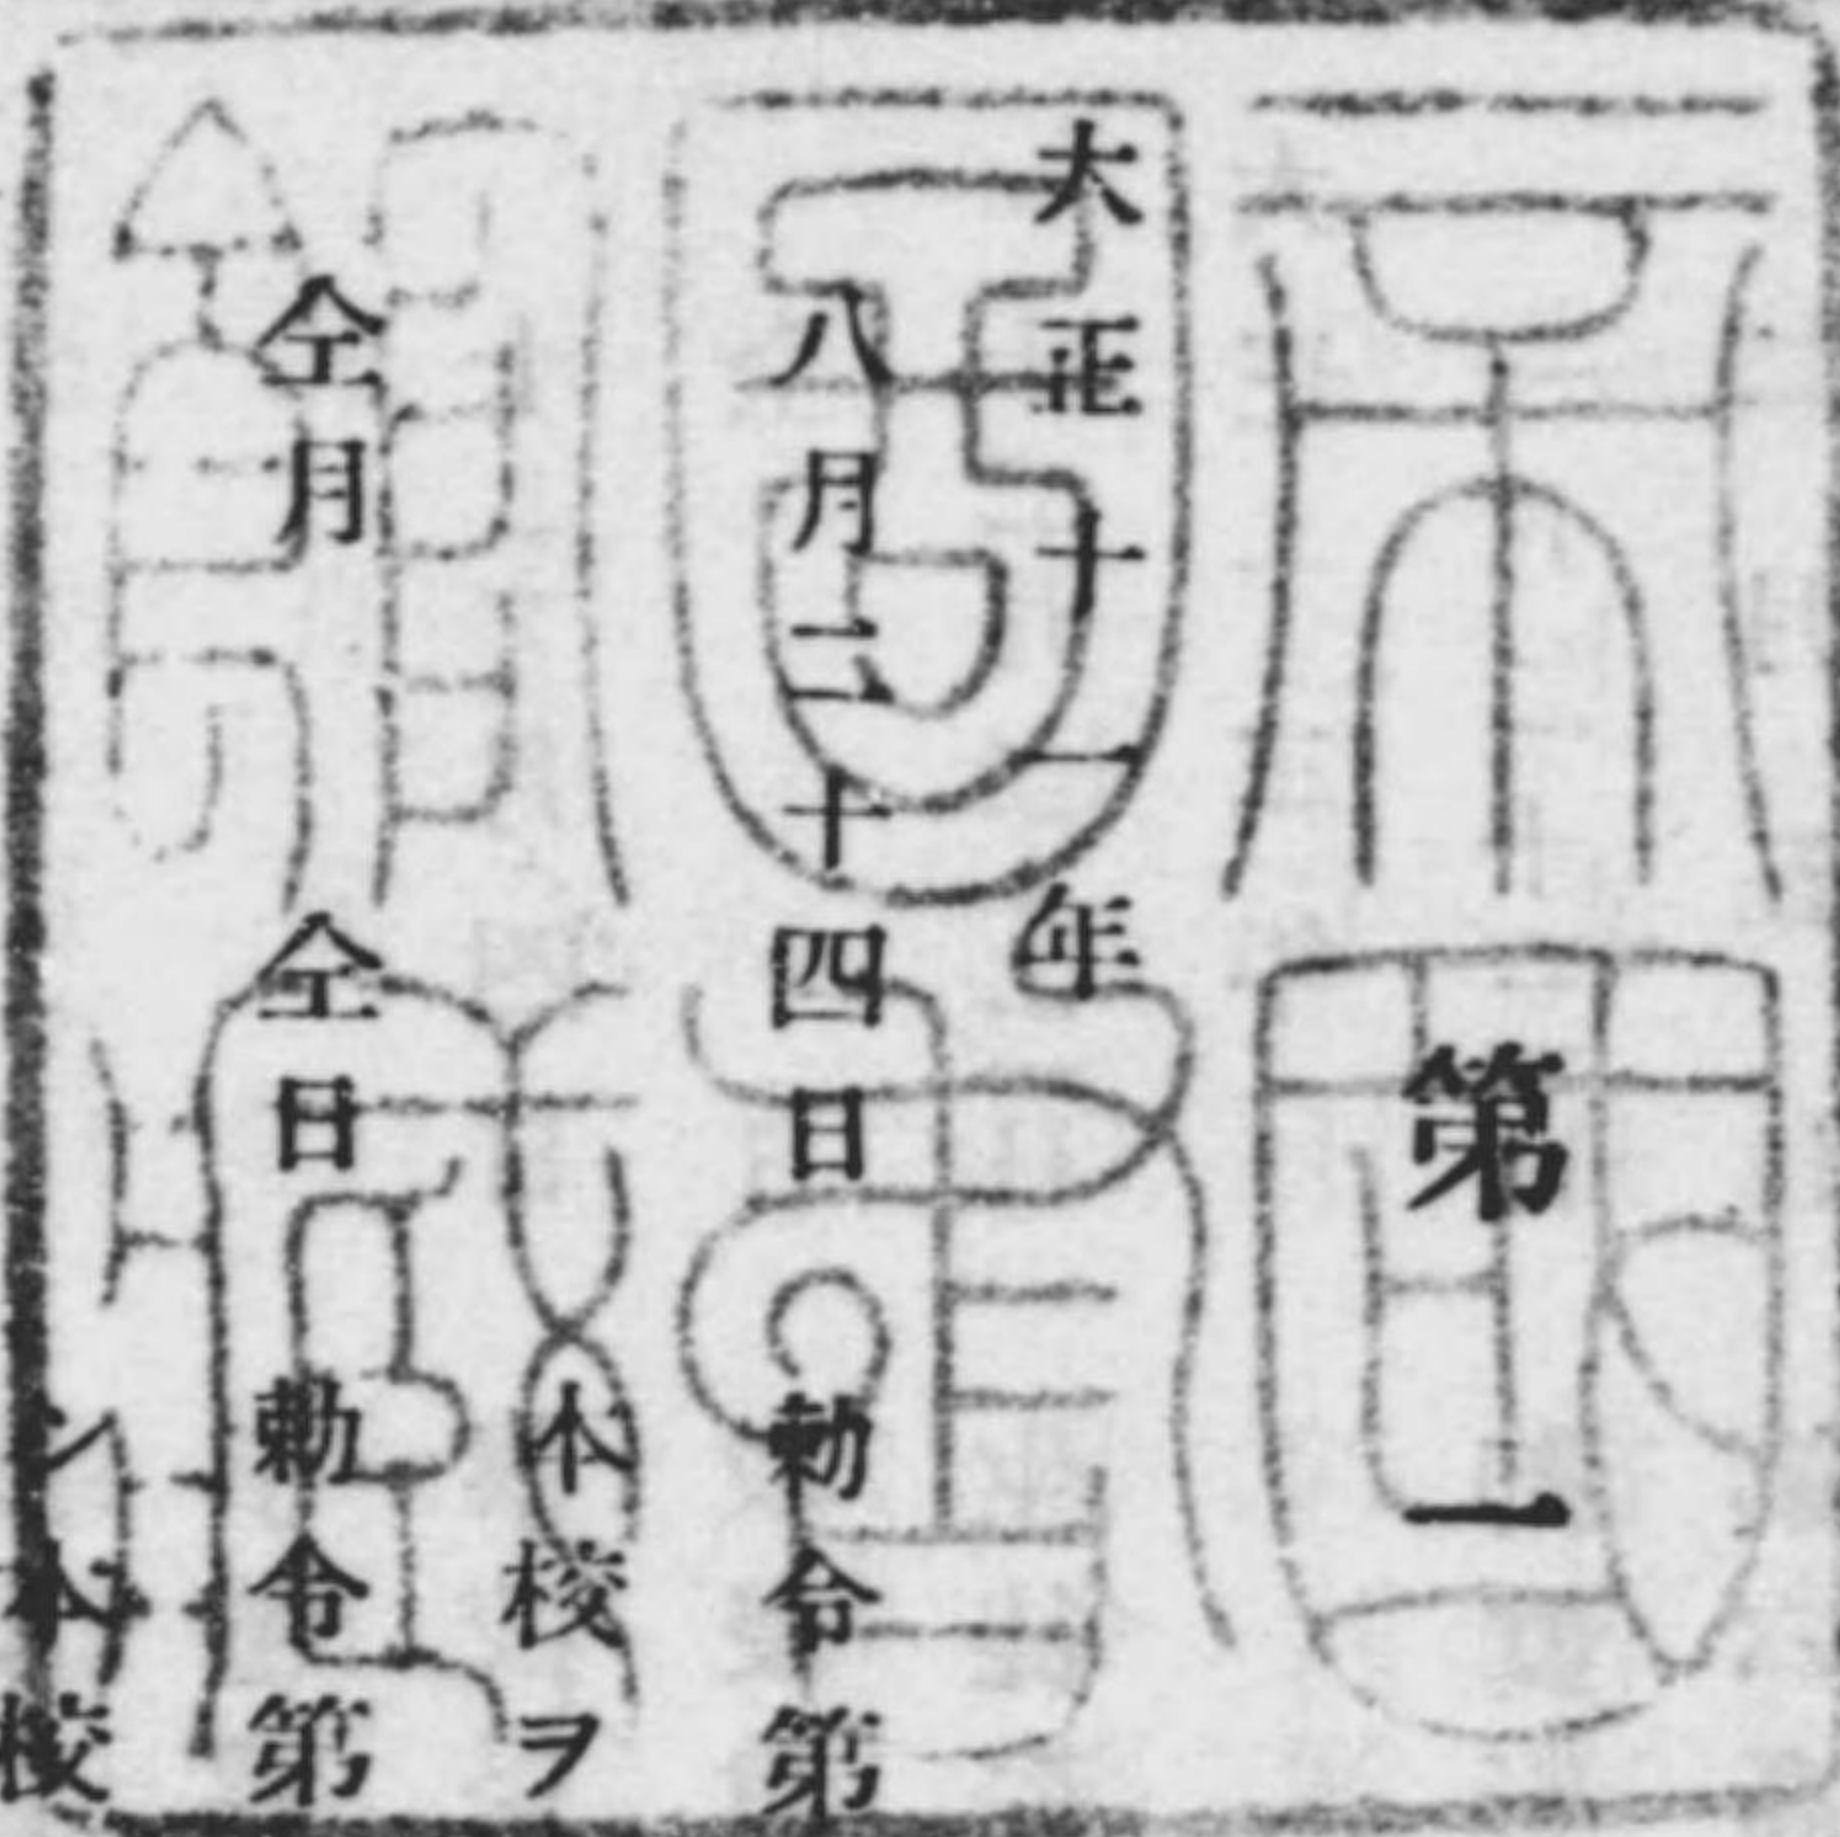 帝國
圖書
館藏
第一
大正十一年
八月二十四日勅令第
本校ヲ
仝月仝日勅令第
本校